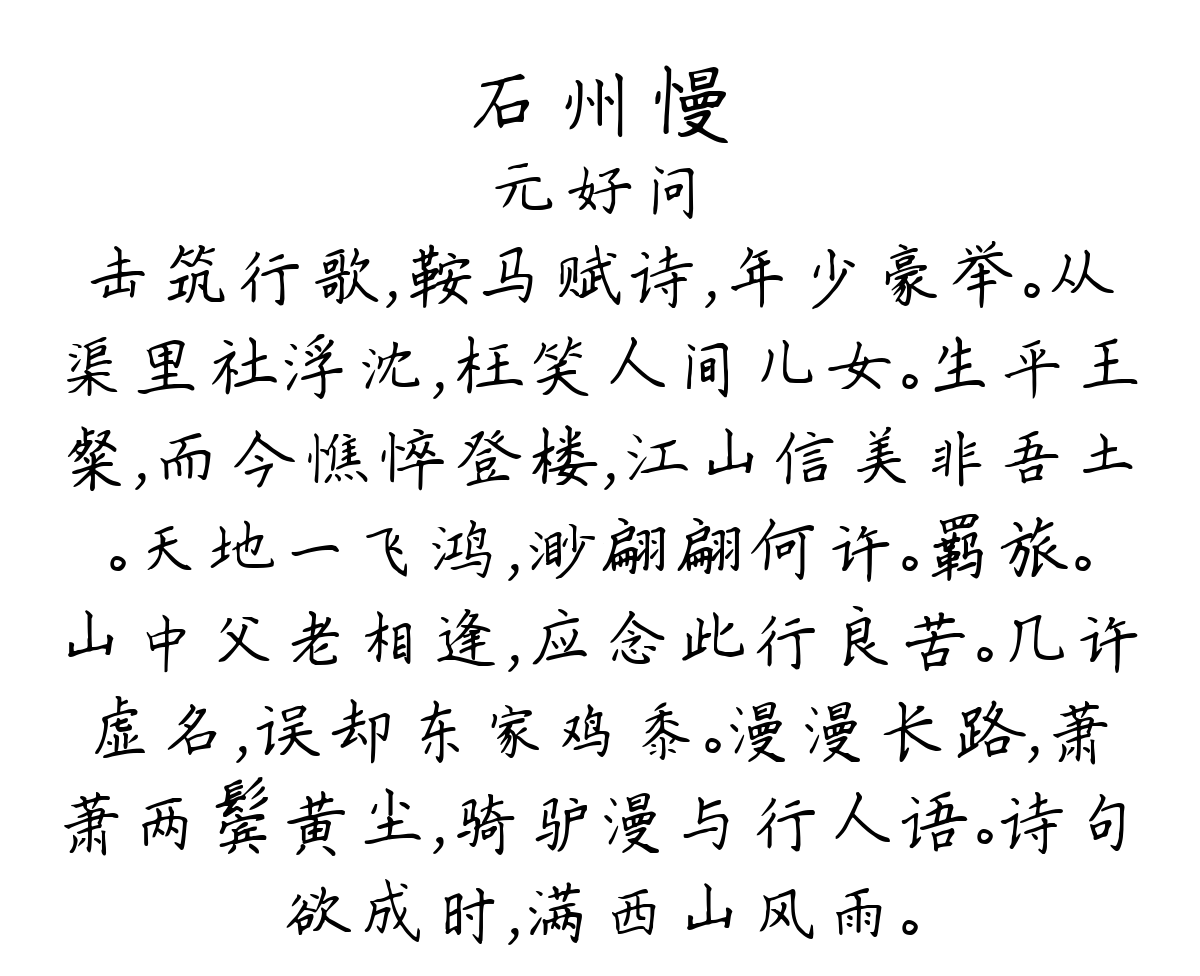 石州慢
元好问
击筑行歌,鞍马赋诗,年少豪举。从
渠里社浮沈,枉笑人间儿女。生平王
粲,而今憔悴登楼,江山信美非吾土
。天地一飞鸿,渺翩翩何许。羁旅。
山中父老相逢,应念此行良苦。几许
虚名,误却东家鸡黍。漫漫长路,萧
萧两鬓黄尘,骑驴漫与行人语。诗句
欲成时,满西山风雨。